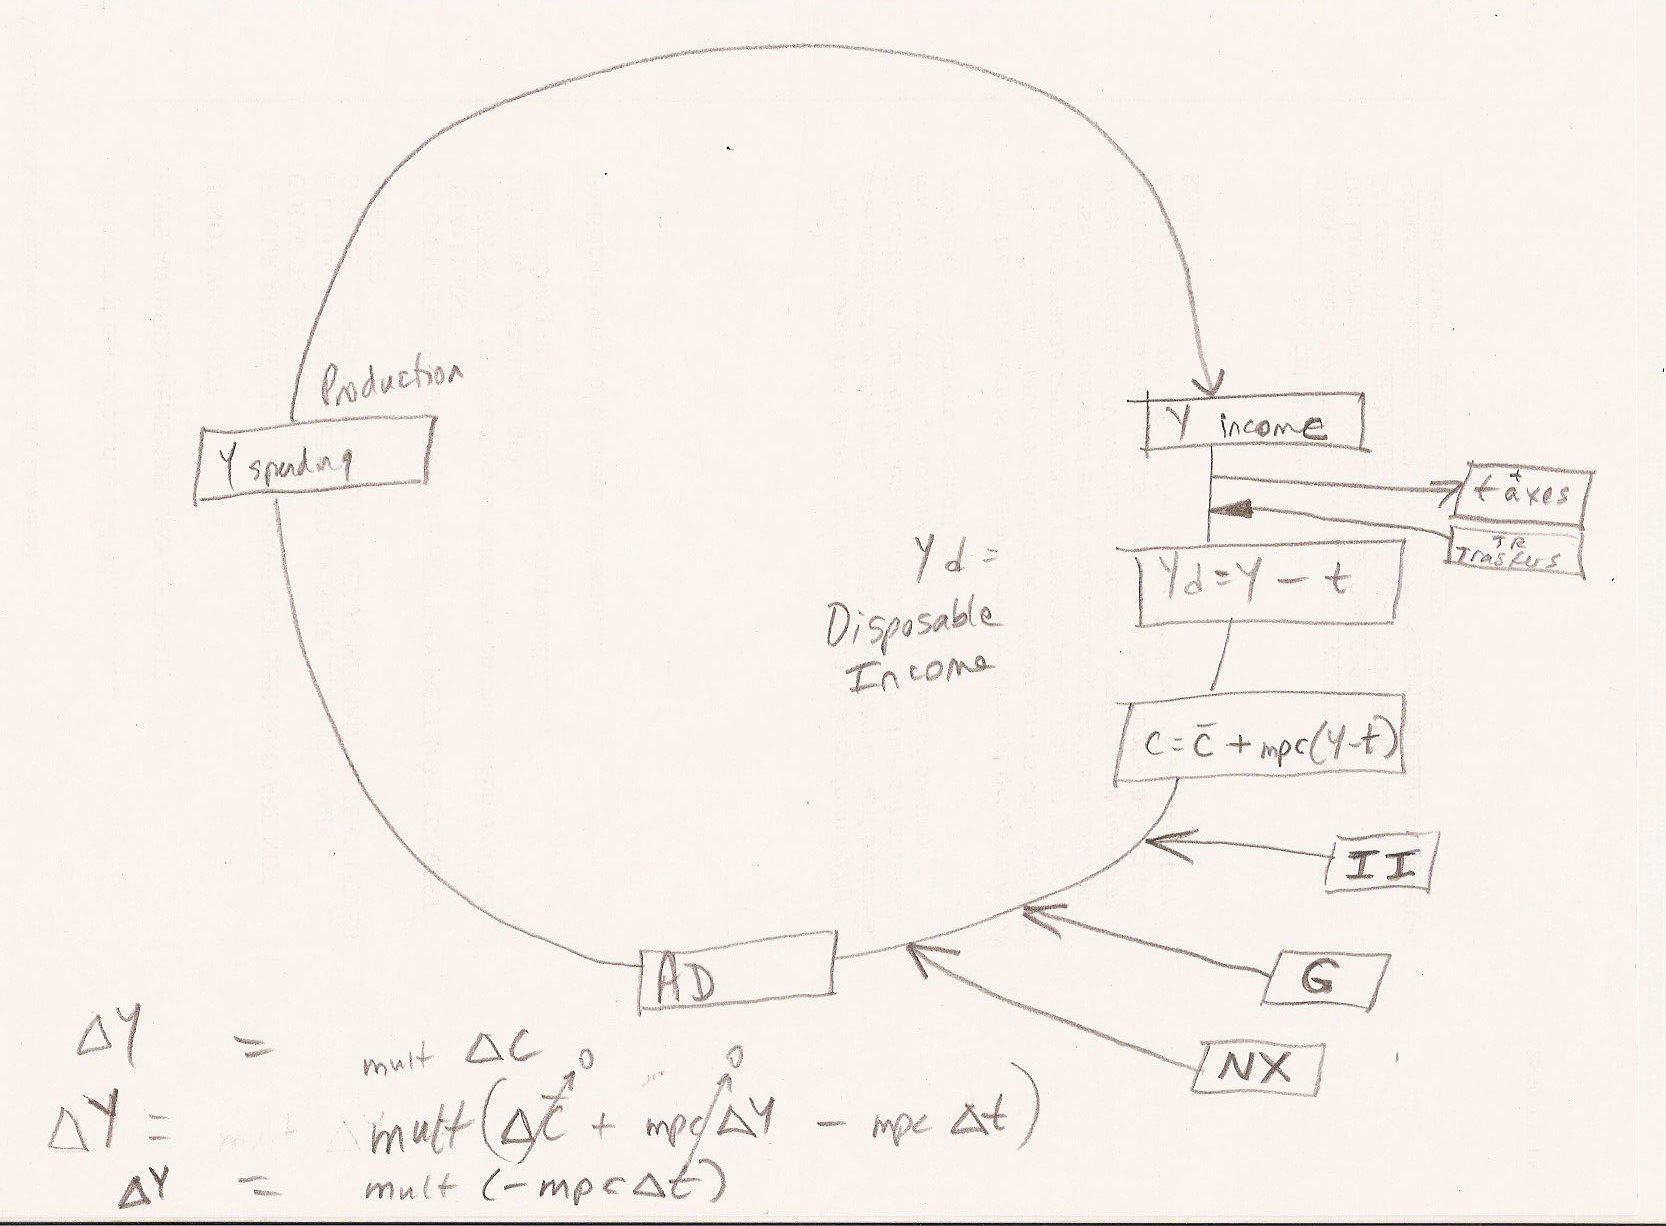 Production
Y spending
Y income
t
taxes
TR
Trasfers
Yd =
Disposable
Income
Yd = Y - t
C = C̄ + mpc(Y-t)
II
G
NX
AD
ΔY = mult ΔC
ΔY = mult(ΔC̄ 0 + mpc ΔY 0 - mpc Δt)
ΔY = mult (-mpc Δt)